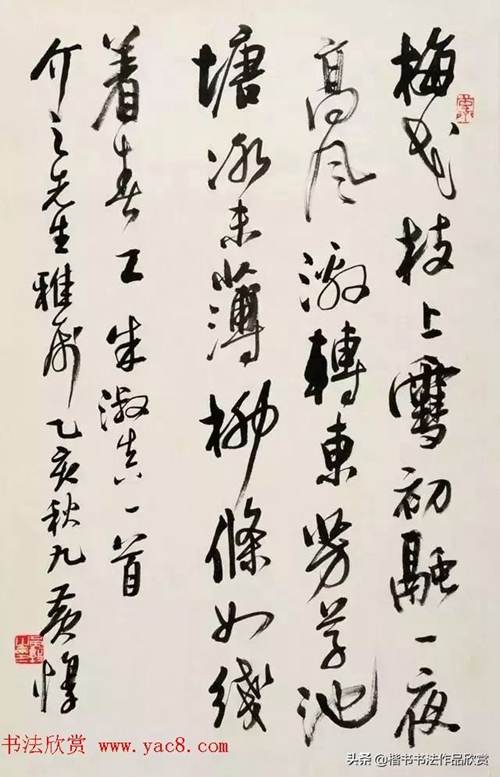 梅花枝上雪初融一夜
高风激轉東芳草池
塘冰未薄柳條如綫
着春工 朱淑真一首
介之先生雅属 乙亥秋九 黄惇
书法欣赏 www.yac8.com
头条 @楷书书法作品欣赏